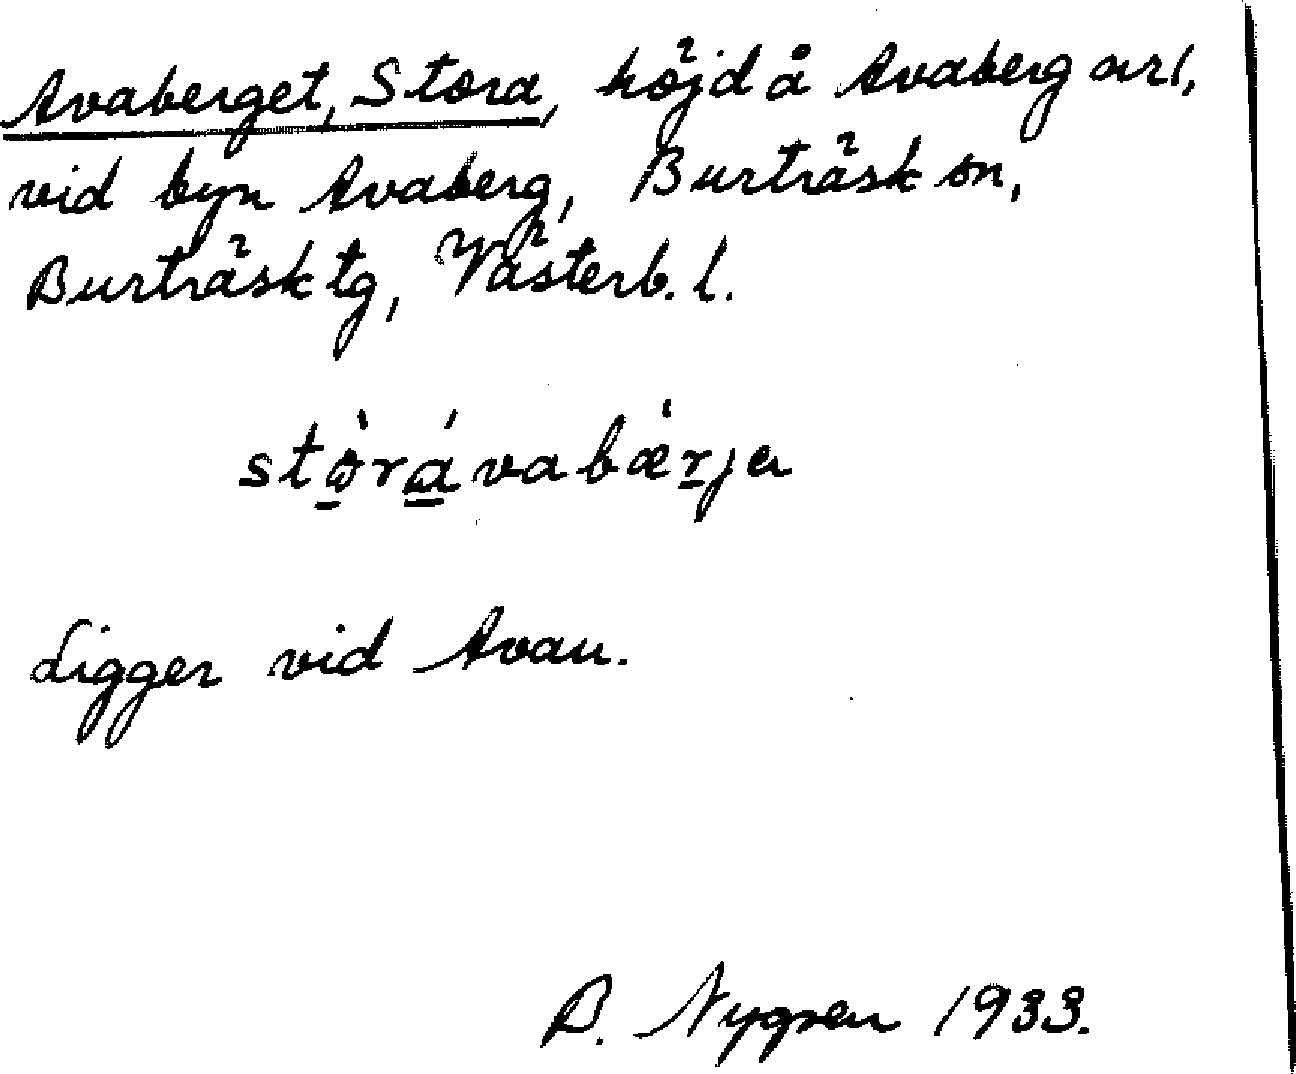 Avaberget, Stora, höjd å Avaberg url,
vid byn Avaberg, Burträsk sn,
Burträsk tg, Västerb. l.
stòrávabæ̀rja
Ligger vid Avan.
B. Nygren 1933.